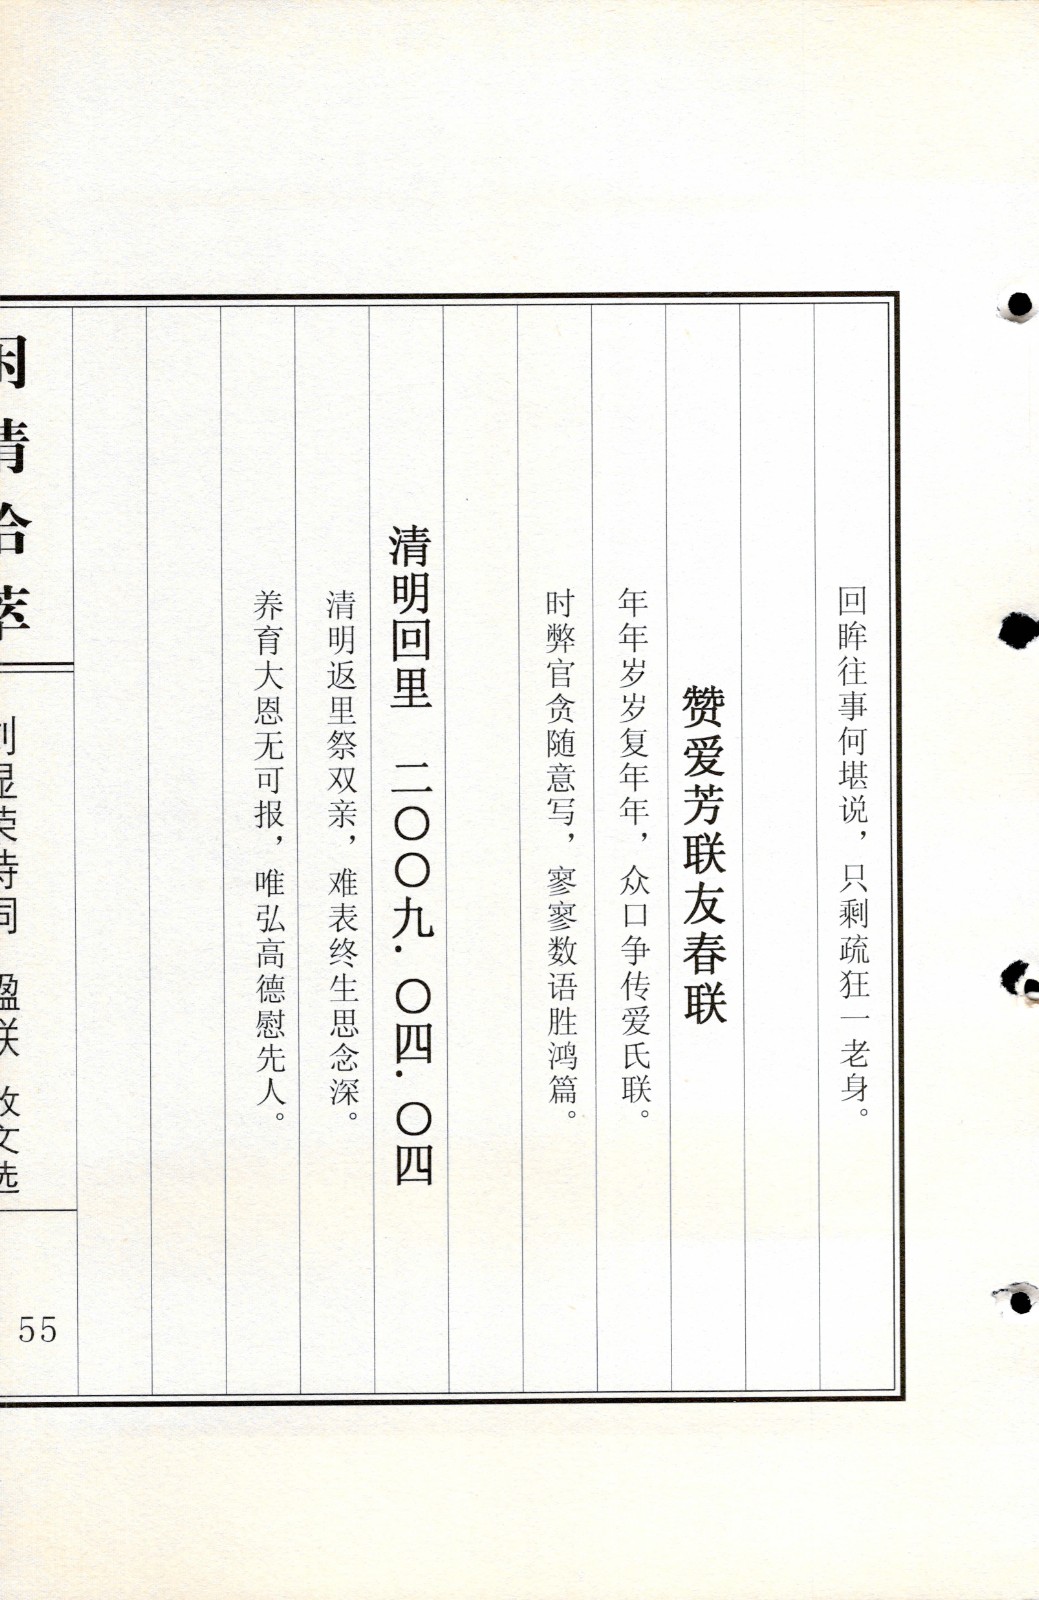 回眸往事何堪说，只剩疏狂一老身。
赞爱芳联友春联
年年岁岁复年年，众口争传爱氏联。
时弊官贪随意写，寥寥数语胜鸿篇。
清明回里 二〇〇九.〇四.〇四
清明返里祭双亲，难表终生思念深。
养育大恩无可报，唯弘高德慰先人。
闲情拾萃
刘显荣诗词 盈联 散文选
55